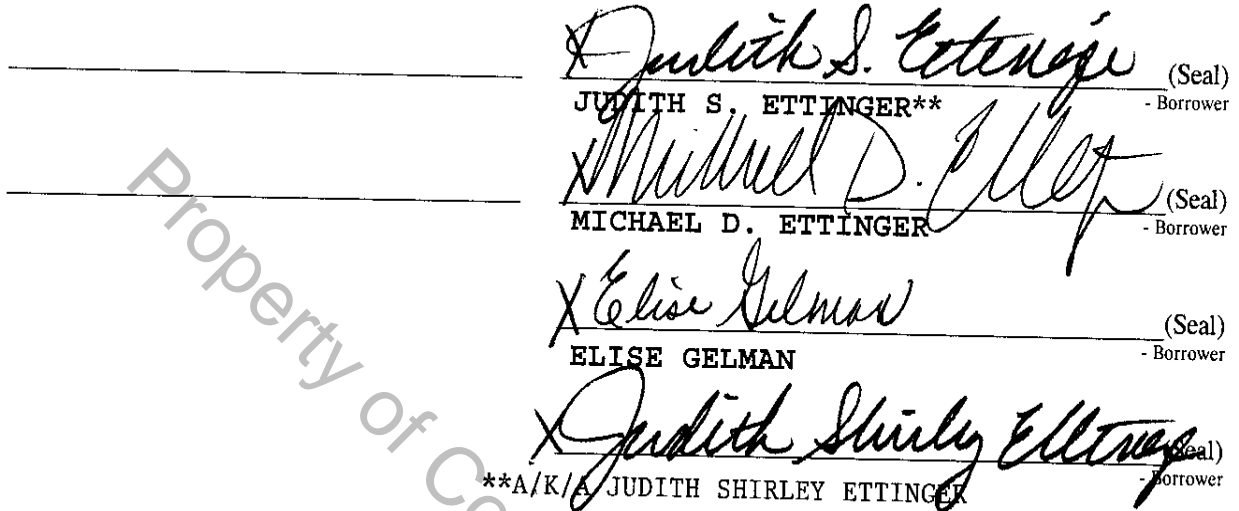 X Judith S. Ettinger (Seal)
JUDITH S. ETTINGER** - Borrower
X Michael D. Ettinger (Seal)
MICHAEL D. ETTINGER - Borrower
X Elise Gelman (Seal)
ELISE GELMAN - Borrower
X Judith Shirley Ettinger (Seal)
**A/K/A JUDITH SHIRLEY ETTINGER - Borrower
Property of Co